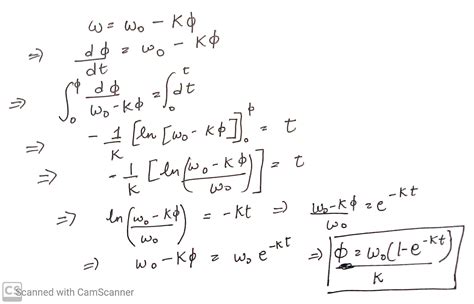 ω = ω₀ − Kϕ
⇒ dϕ/dt = ω₀ − Kϕ
⇒ ∫₀^ϕ dϕ/(ω₀−Kϕ) = ∫₀^t dt
⇒ −1/K [ln [ω₀ − Kϕ]]₀^ϕ = t
⇒ −1/K [ln((ω₀ − Kϕ)/ω₀)] = t
⇒ ln((ω₀−Kϕ)/ω₀) = −Kt ⇒ (ω₀−Kϕ)/ω₀ = e^−Kt
⇒ ω₀−Kϕ = ω₀ e^−Kt ⇒ ϕ = ω₀(1−e^−Kt)/K
CS Scanned with CamScanner